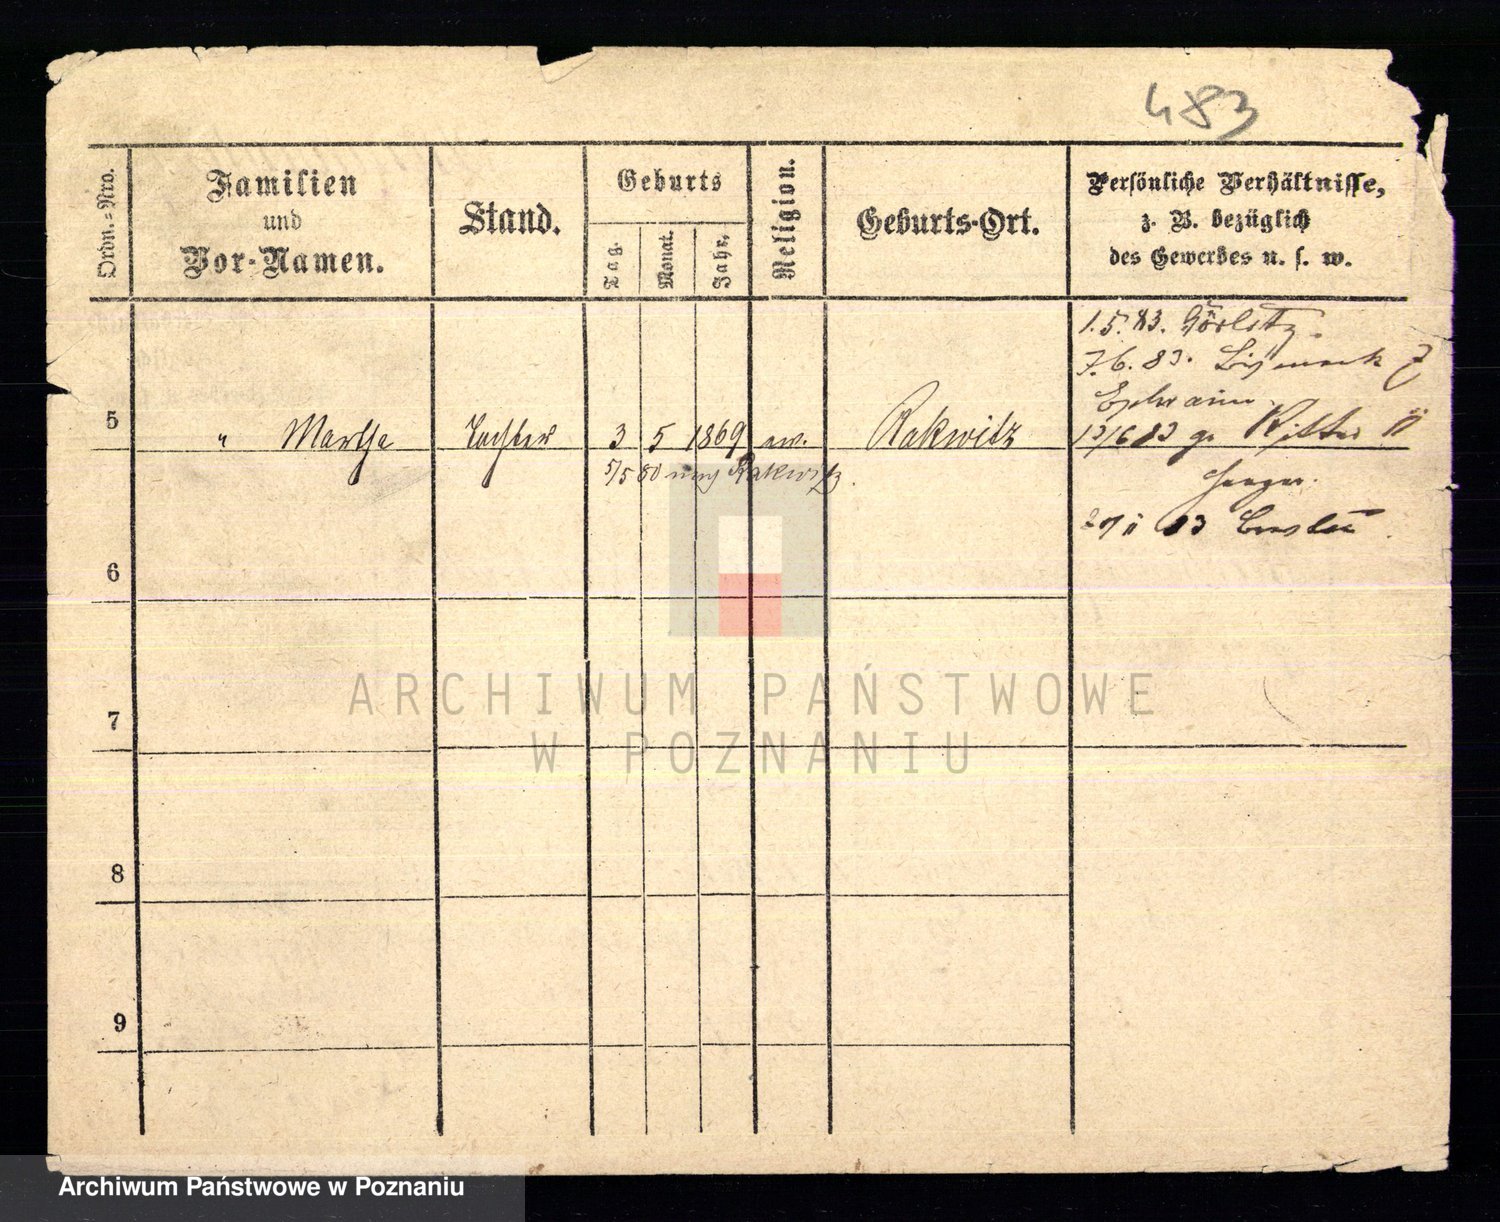 483
Ordn.=Nro.
Familien
und
Vor-Namen.
Stand.
Geburts
Tag.
Monat.
Jahr.
Religion.
Geburts-Ort.
Persönliche Verhältnisse,
z. B. bezüglich
des Gewerbes u. s. w.
1.5.83. Görlitz.
7.6.83. Bismarck 7
Ephraim.
5 " Martha Tochter 3 5 1869 ev. Rakwitz
13/6 83 gr Ritter 11
5/5 80 nach Rakwitz.
83 Breslau
6
7
8
9
ARCHIWUM PAŃSTWOWE
W POZNANIU
Archiwum Państwowe w Poznaniu